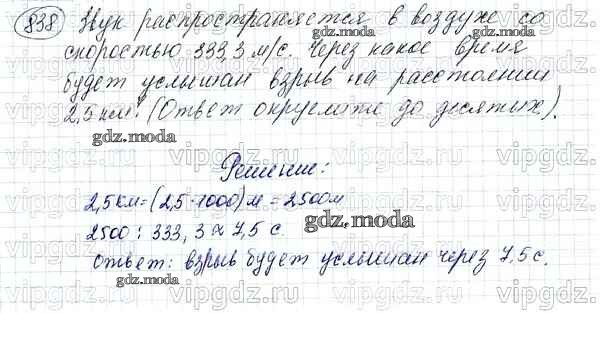 838 Звук распространяется в воздухе со
скоростью 333,3 м/с. Через какое время
будет услышан взрыв на расстоянии
2,5 км? (Ответ округлите до десятых).
gdz.moda
gdz.moda
Решение:
2,5 км = (2,5 · 1000) м = 2500 м
gdz.moda
2500 : 333,3 ≈ 7,5 с.
Ответ: взрыв будет услышан через 7,5 с.
gdz.moda
vipgdz.ru